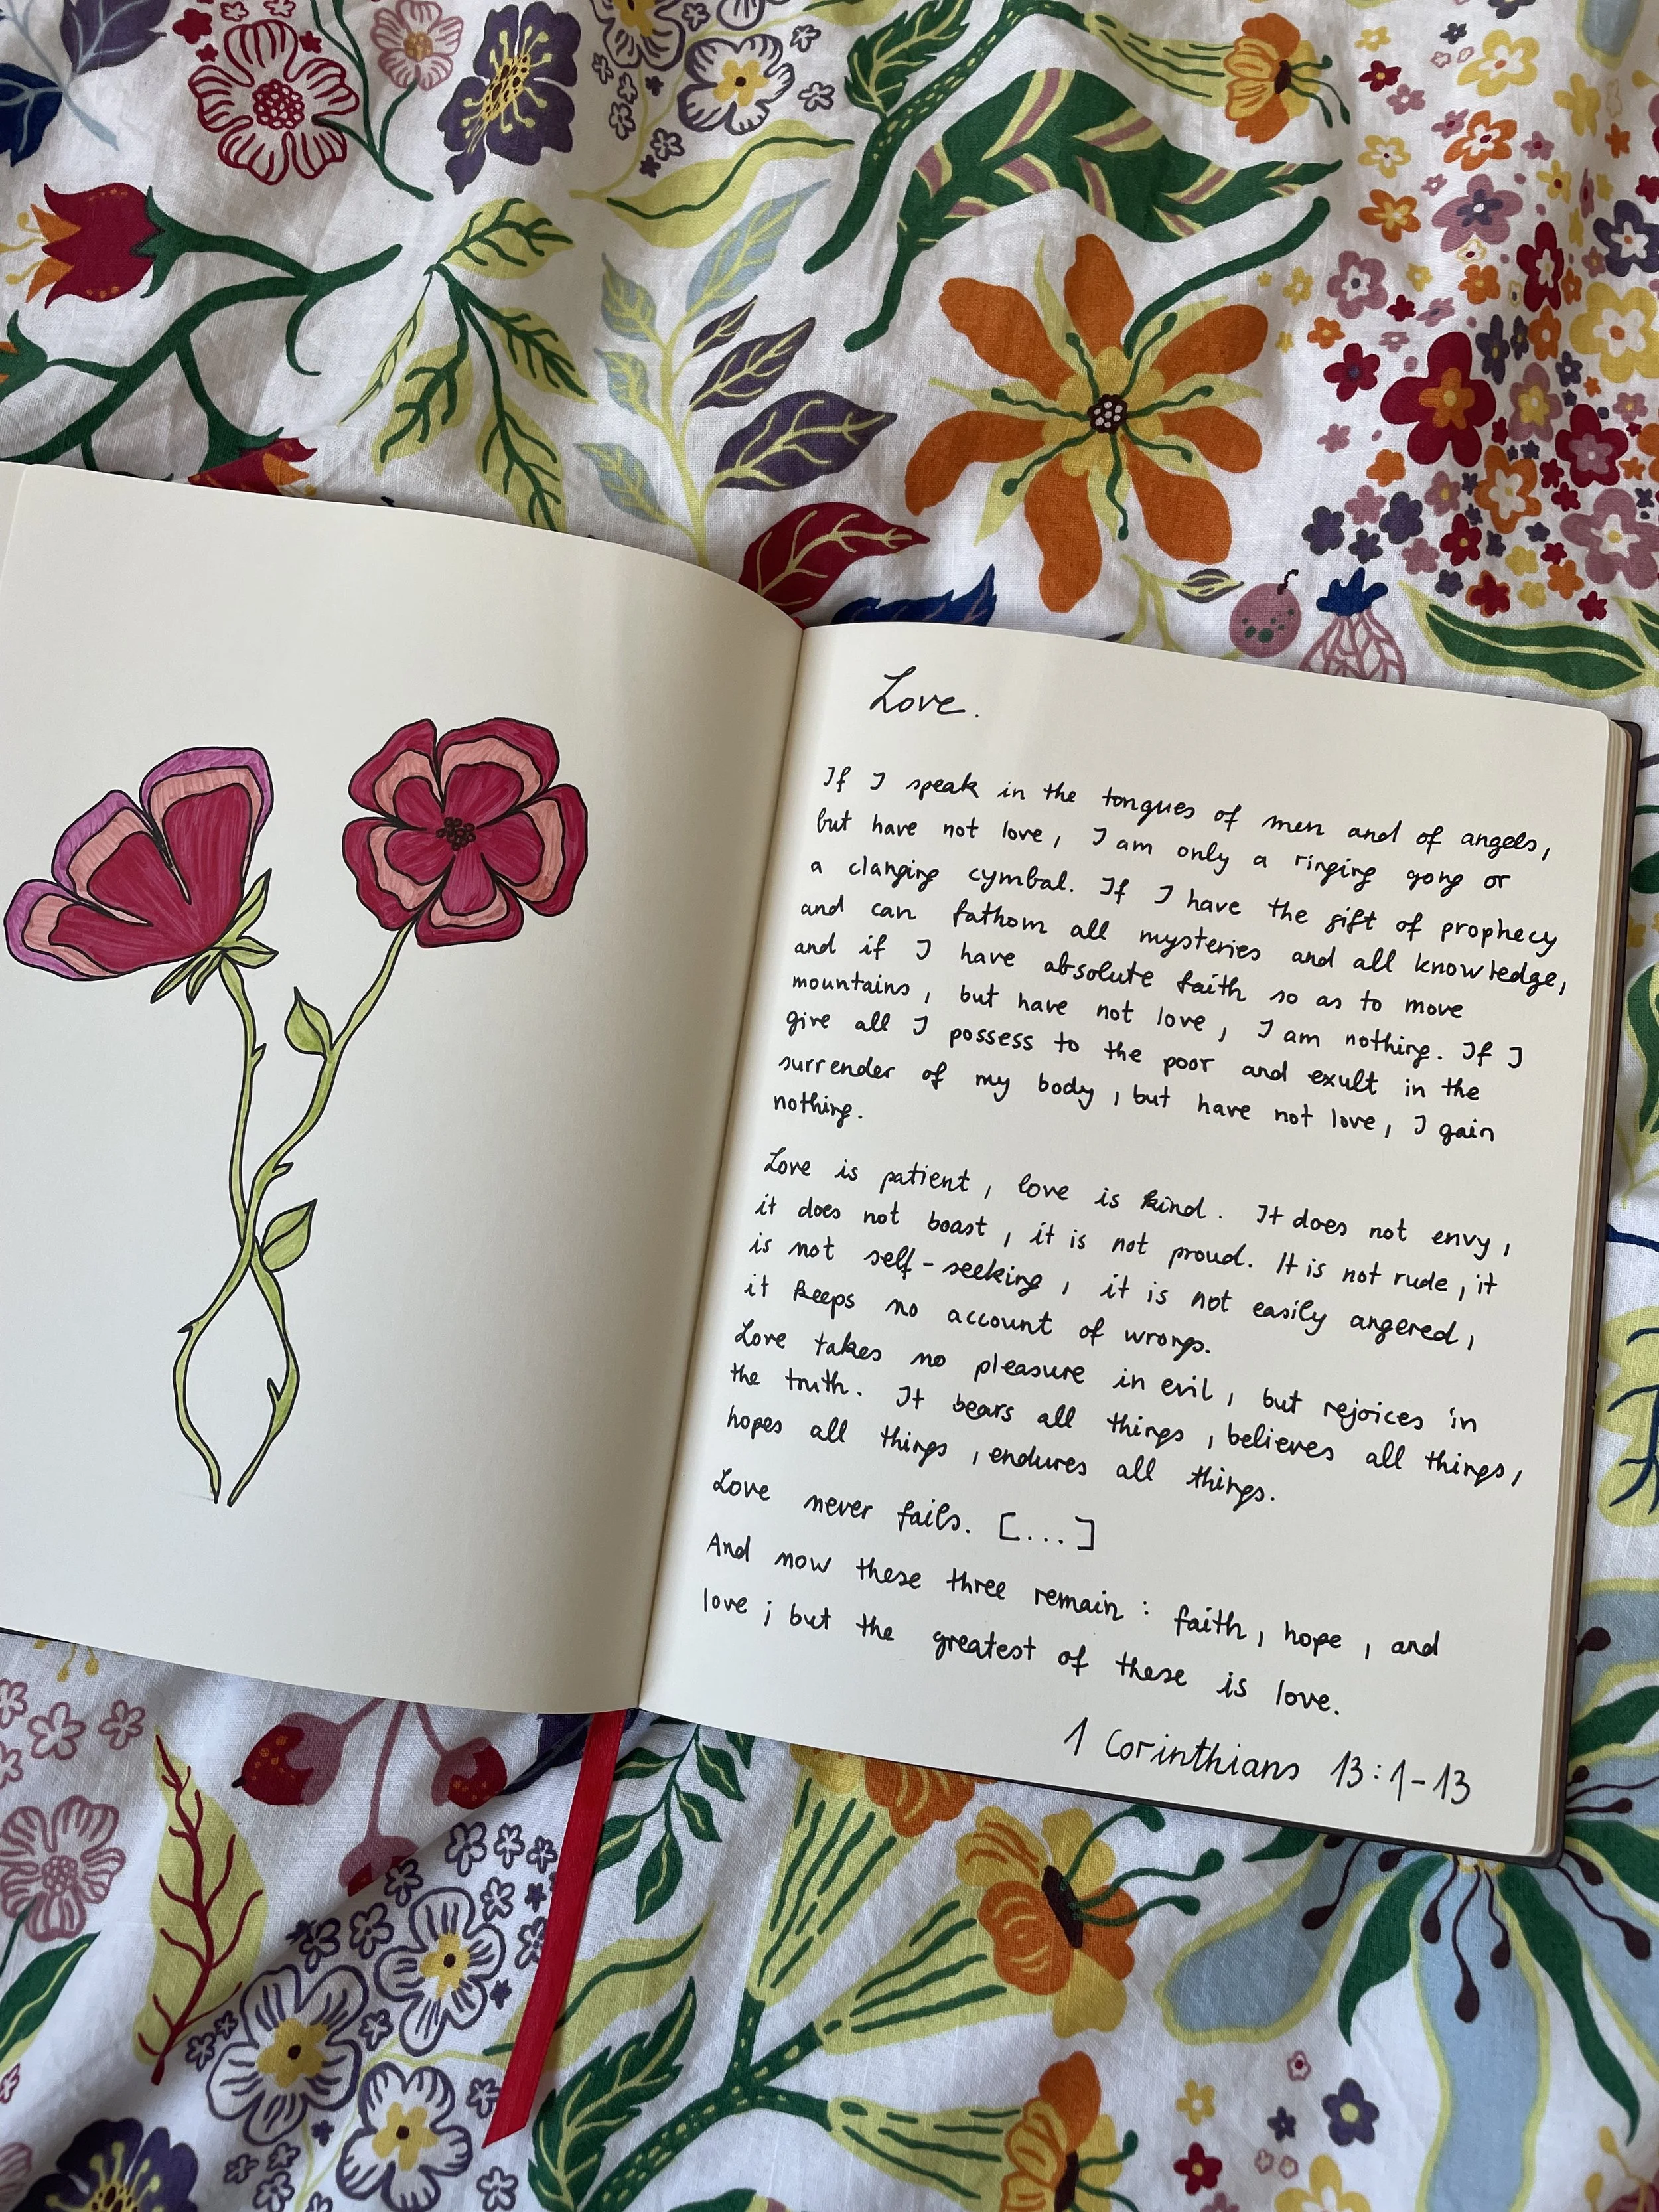 Love.
If I speak in the tongues of men and of angels,
but have not love, I am only a ringing gong or
a clanging cymbal. If I have the gift of prophecy
and can fathom all mysteries and all knowledge,
and if I have absolute faith so as to move
mountains, but have not love, I am nothing. If I
give all I possess to the poor and exult in the
surrender of my body, but have not love, I gain
nothing.
Love is patient, love is kind. It does not envy,
it does not boast, it is not proud. It is not rude, it
is not self-seeking, it is not easily angered,
it keeps no account of wrongs.
Love takes no pleasure in evil, but rejoices in
the truth. It bears all things, believes all things,
hopes all things, endures all things.
Love never fails. [...]
And now these three remain: faith, hope, and
love; but the greatest of these is love.
1 Corinthians 13:1-13